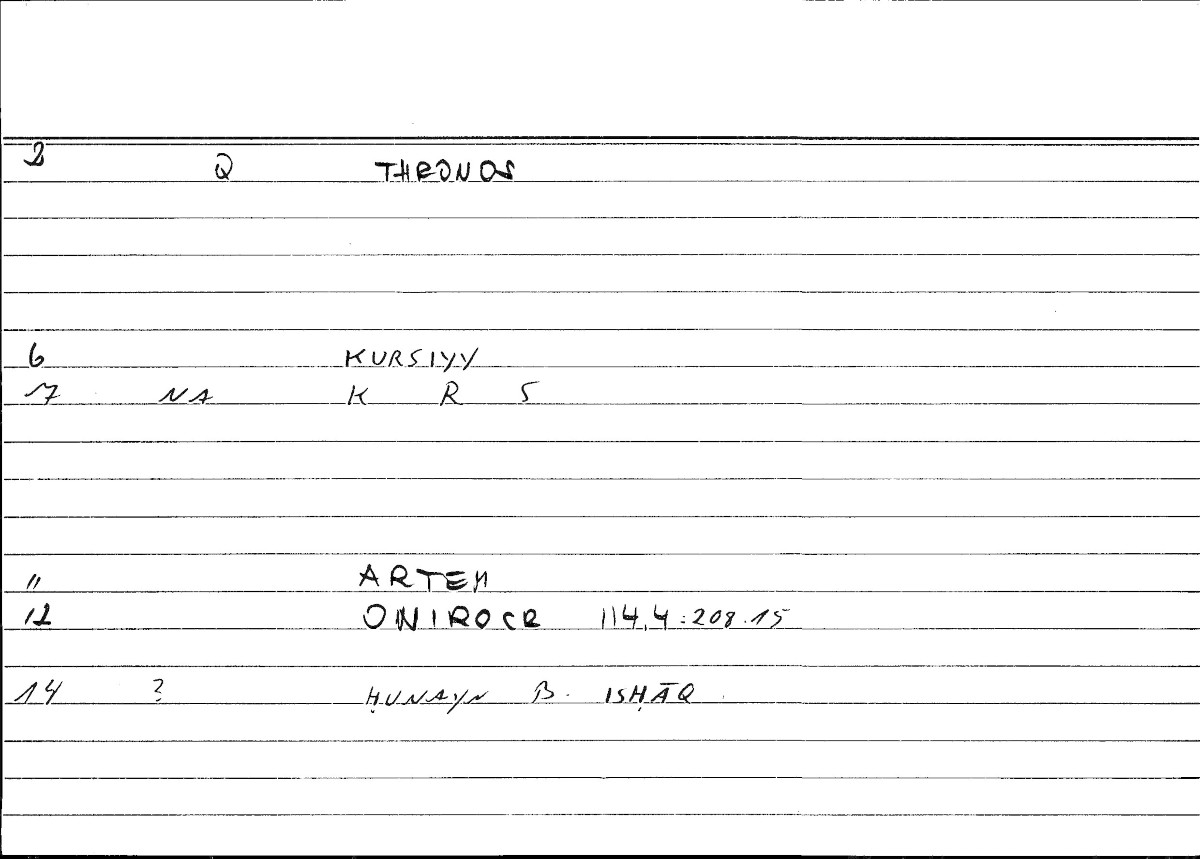 2 Q THRONOS
6 KURSIYY
7 NA K R S
11 ARTEM
12 ONIROCR 114,4:208.15
14 ? ḤUNAYN B. ISḤĀQ